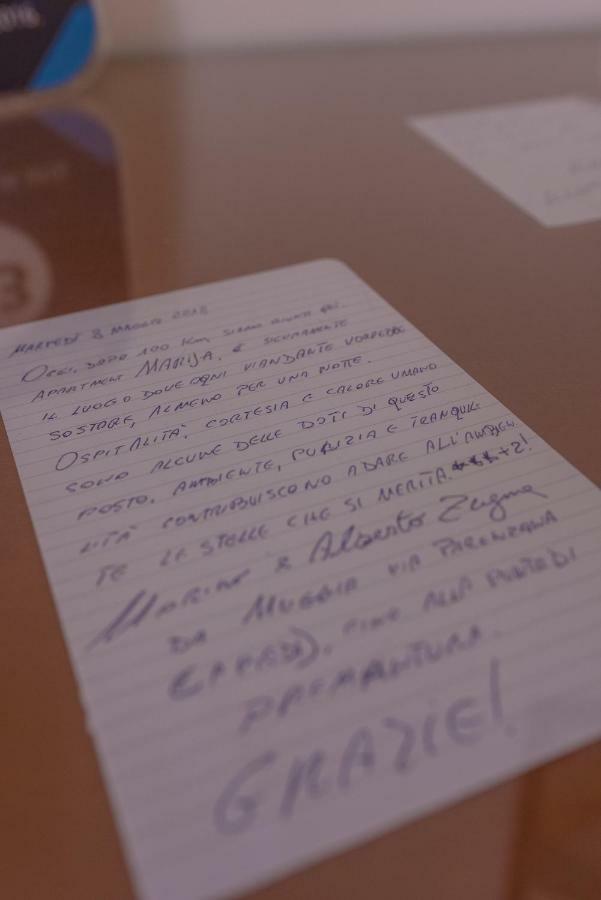 2018.
3
MARTEDÌ 8 MAGGIO 2018
OGGI, DOPO 100 KM, SIAMO GIUNTI QUI.
APARTMENT MARIJA, È SICURAMENTE
IL LUOGO DOVE OGNI VIANDANTE VORREBBE
SOSTARE, ALMENO PER UNA NOTTE.
OSPITALITÀ, CORTESIA E CALORE UMANO
SONO ALCUNE DELLE DOTI DI QUESTO
POSTO. AMBIENTE, PULIZIA E TRANQUIL-
LITÀ CONTRIBUISCONO A DARE ALL'AMBIEN
TE LE STELLE CHE SI MERITA. ****+2!
MARINO & Alberto
DA MUGGIA VIA PARENZANA
(A PIEDI), FINO ALLA PUNTA DI
PREMANTURA.
GRAZIE!